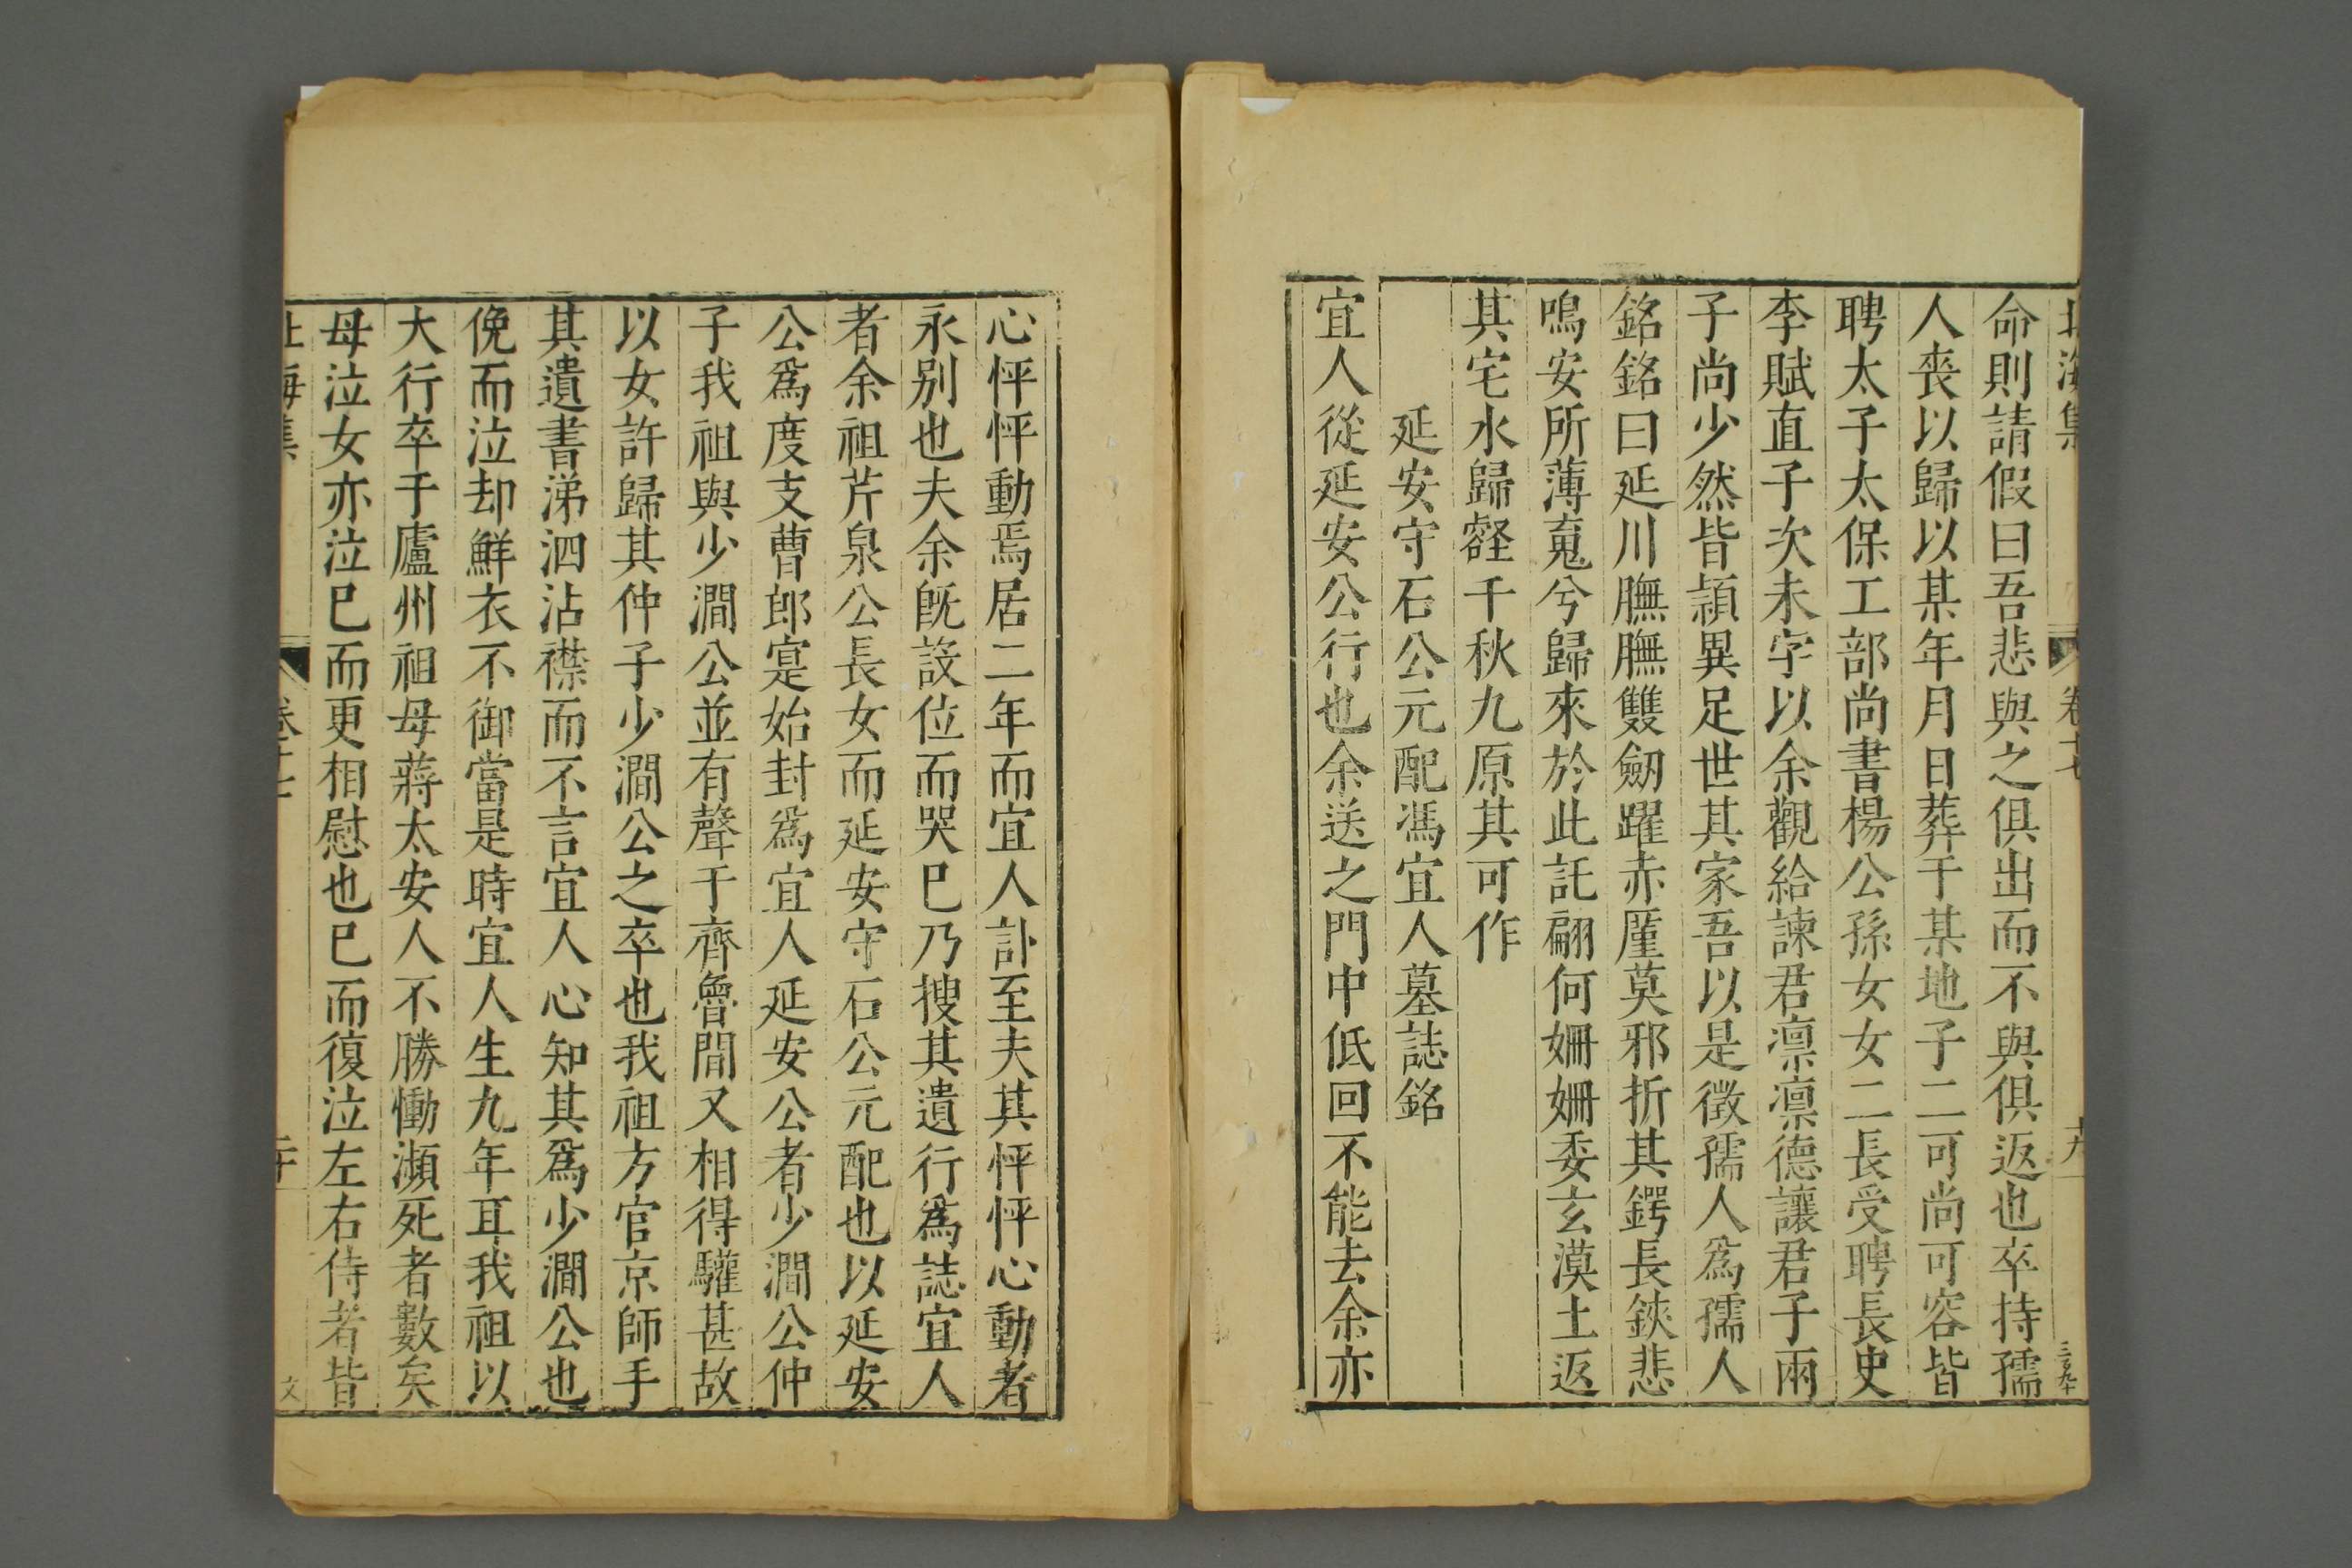 北海集 卷十七 十九
命則請假曰吾悲與之俱出而不與俱返也卒持孺
人喪以歸以某年月日葬于某地子二可尚可容皆
聘太子太保工部尚書楊公孫女女二長受聘長史
李賦直子次未字以余觀給諫君凛凛德讓君子兩
子尚少然皆頴異足世其家吾以是徵孺人爲孺人
銘銘曰延川膴膴雙劒躍赤厓莫邪折其鍔長鋏悲
鳴安所薄䰟兮歸來於此託翩何姍姍委玄漠土返
其宅水歸壑千秋九原其可作
延安守石公元配馮宜人墓誌銘
宜人從延安公行也余送之門中低回不能去余亦
心怦怦動焉居二年而宜人訃至夫其怦怦心動者
永别也夫余旣設位而哭巳乃搜其遺行爲誌宜人
者余祖芹泉公長女而延安守石公元配也以延安
公爲度支曹郎寔始封爲宜人延安公者少澗公仲
子我祖與少澗公並有聲于齊魯間又相得驩甚故
以女許歸其仲子少澗公之卒也我祖方官京師手
其遺書涕泗沾襟而不言宜人心知其爲少澗公也
俛而泣却鮮衣不御當是時宜人生九年耳我祖以
大行卒于廬州祖母蔣太安人不勝慟瀕死者數矣
母泣女亦泣巳而更相慰也巳而復泣左右侍者皆
北海集 卷十七 二十 文